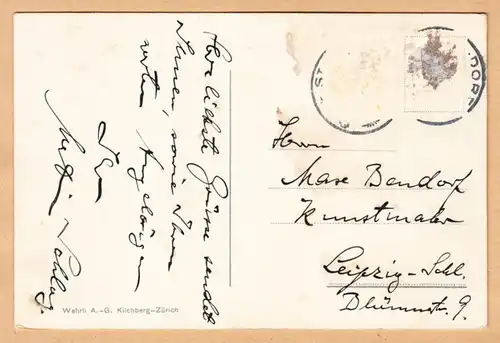 Herzlichste Grüsse sendet
Ihnen, sowie Ihren
werten Angehörigen
Ihr
Wehrli A.-G. Kilchberg-Zürich
DORF
Herrn
Max Bendorf
Kunstmaler
Leipzig-Schl.
Blümnerstr. 9.